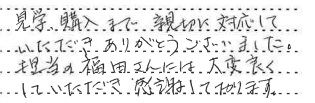 見学、購入まで親切に対応して
いただきありがとうございました。
担当の福田さんには大変良く
していただき感謝しております。